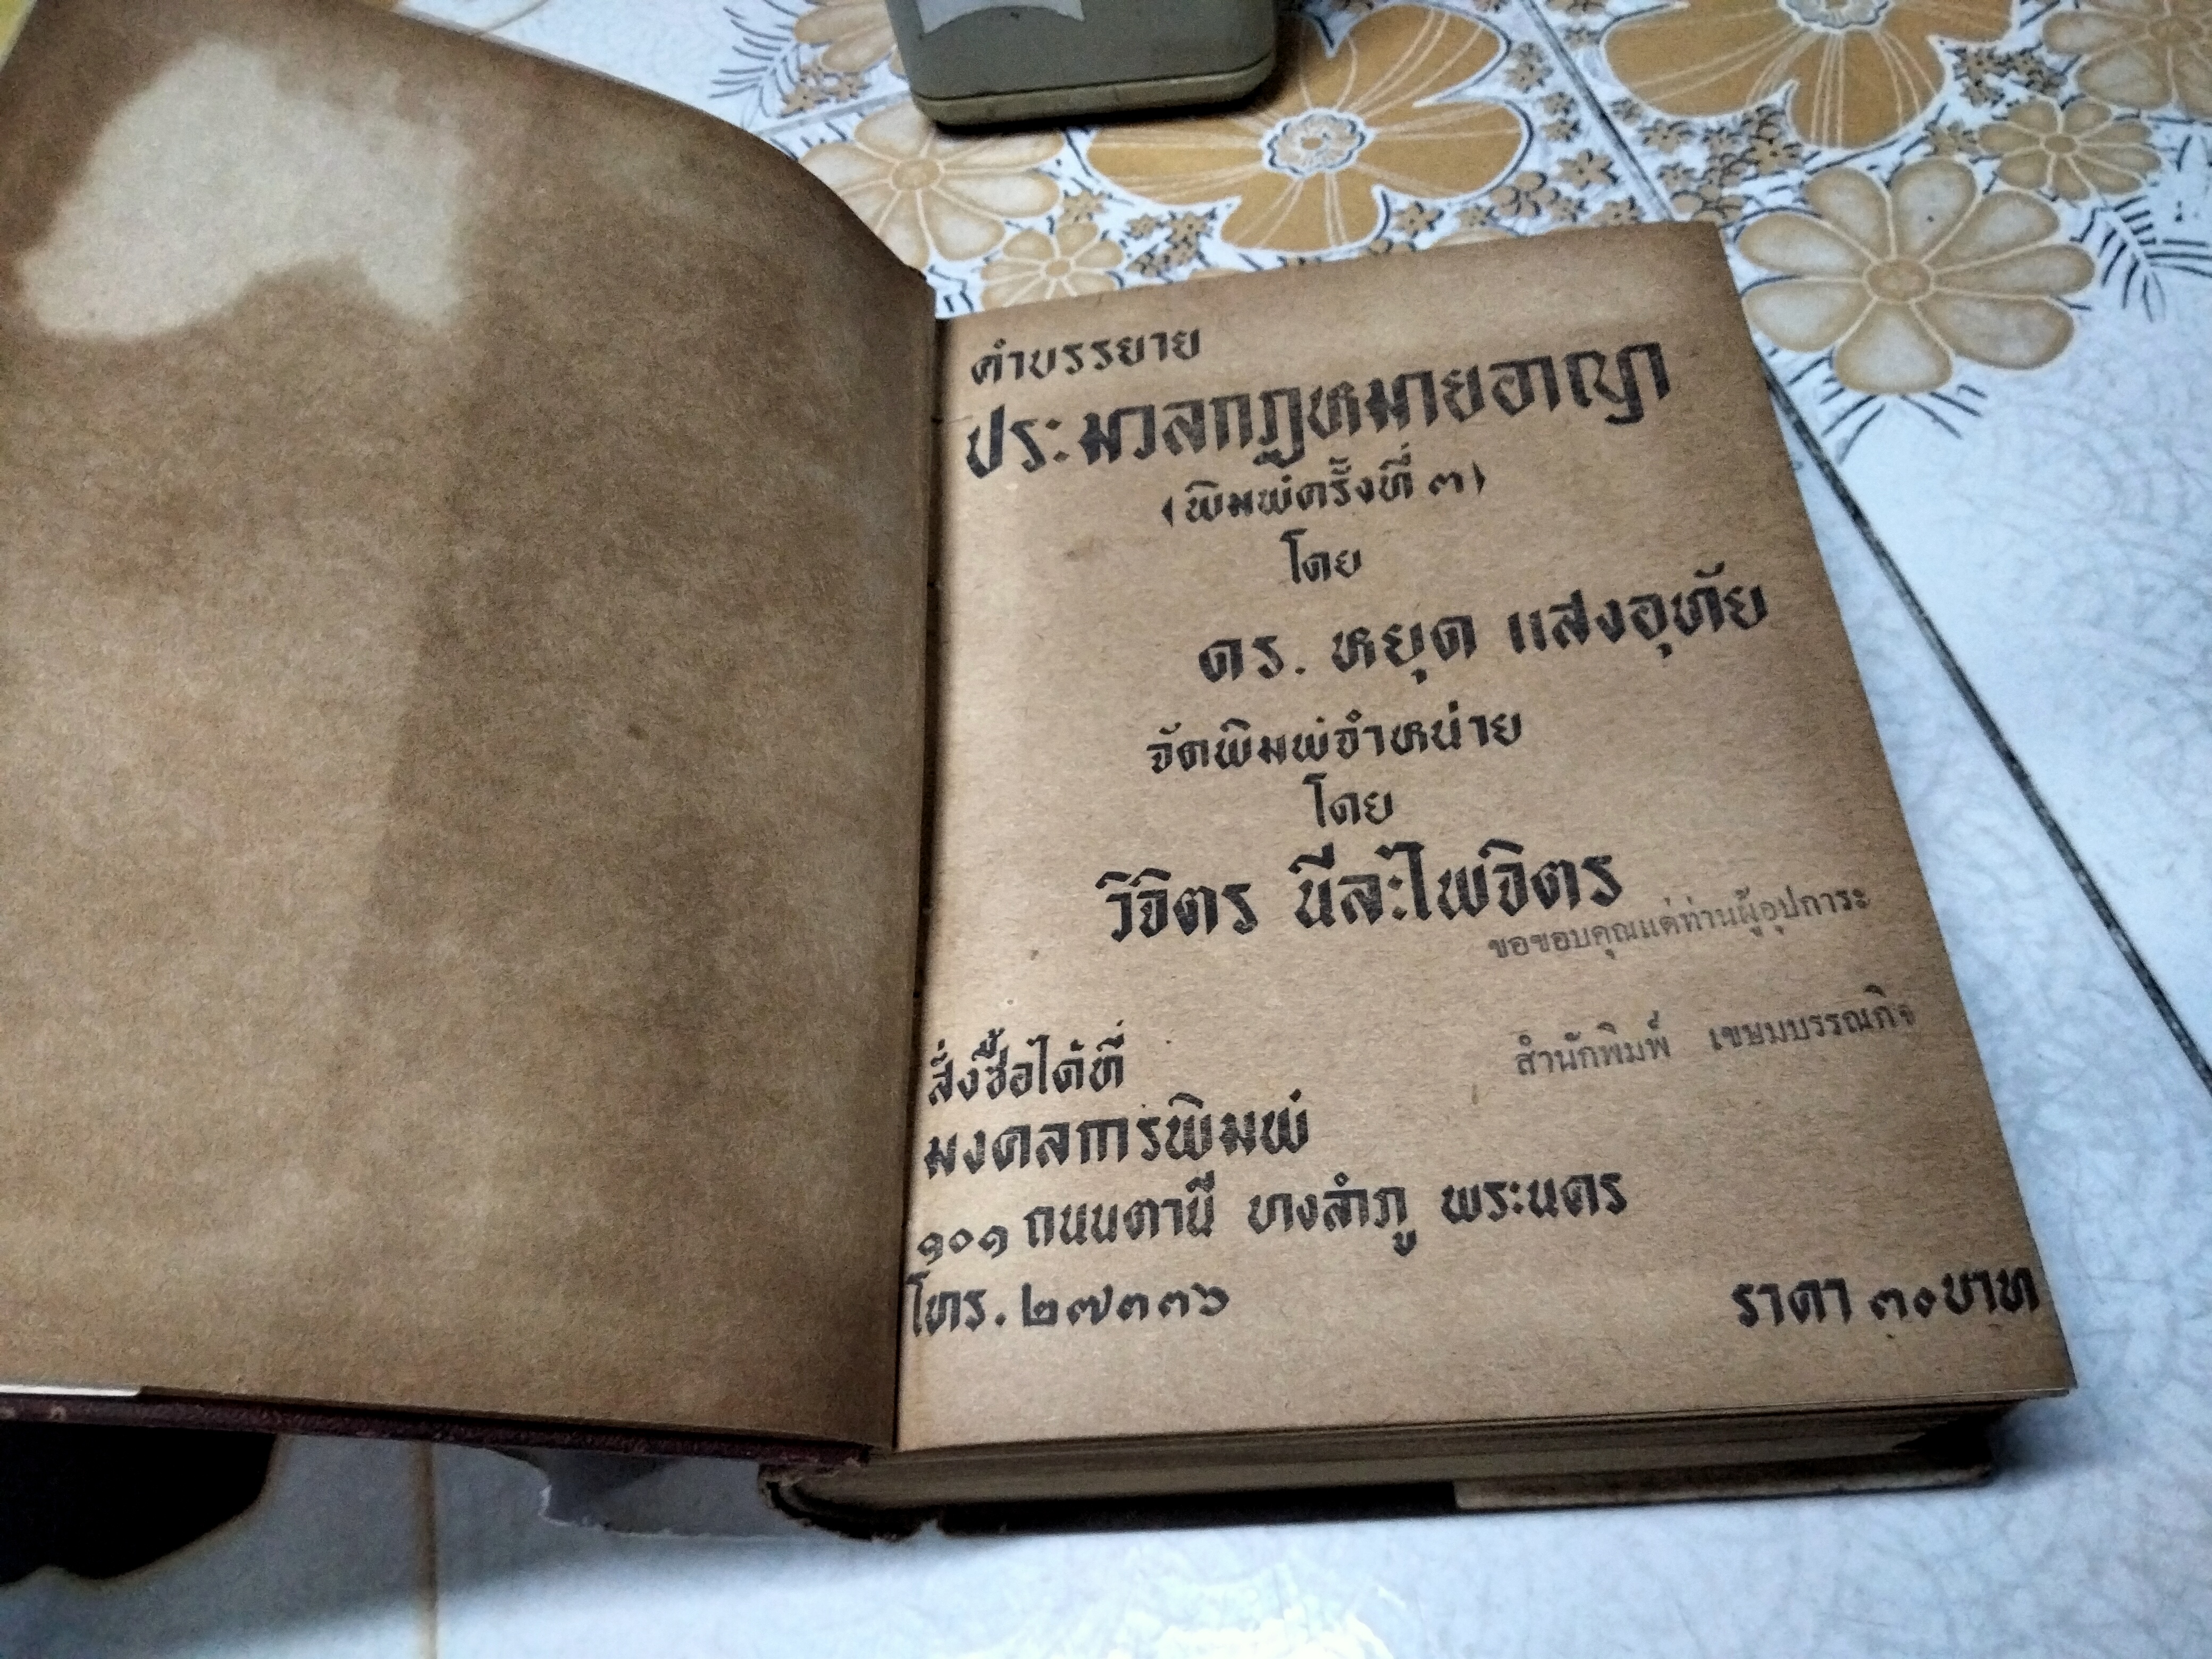 คำบรรยาย
ประมวลกฎหมายอาญา
(พิมพ์ครั้งที่ ๓)
โดย
ดร. หยุด แสงอุทัย
จัดพิมพ์จำหน่าย
โดย
วิจิตร นีละไพจิตร
ขอขอบคุณแด่ท่านผู้อุปการะ
สำนักพิมพ์ เขษมบรรณกิจ
สั่งซื้อได้ที่
มงคลการพิมพ์
๑๐๑ ถนนตานี บางลำภู พระนคร
โทร. ๒๗๓๓๖
ราคา ๓๐ บาท